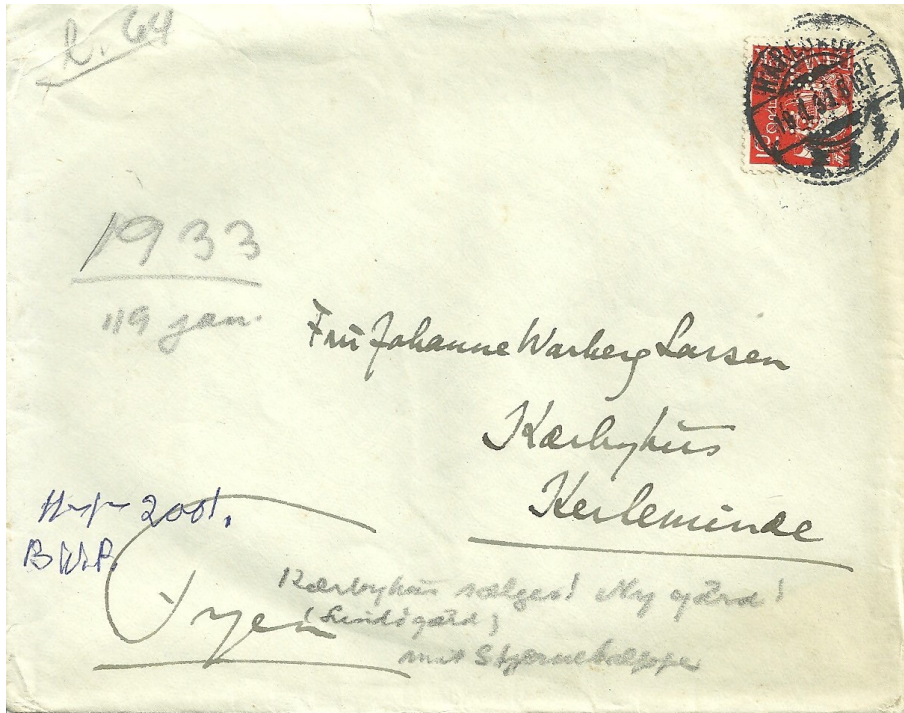 l. 64
1933
19 jan.
Fru Johanne Warberg Larsen
Kærbyhus
Kerteminde
2001.
BWP.
Fyen
Kærbyhus sælges! Ny gård!
(Lindøgård)